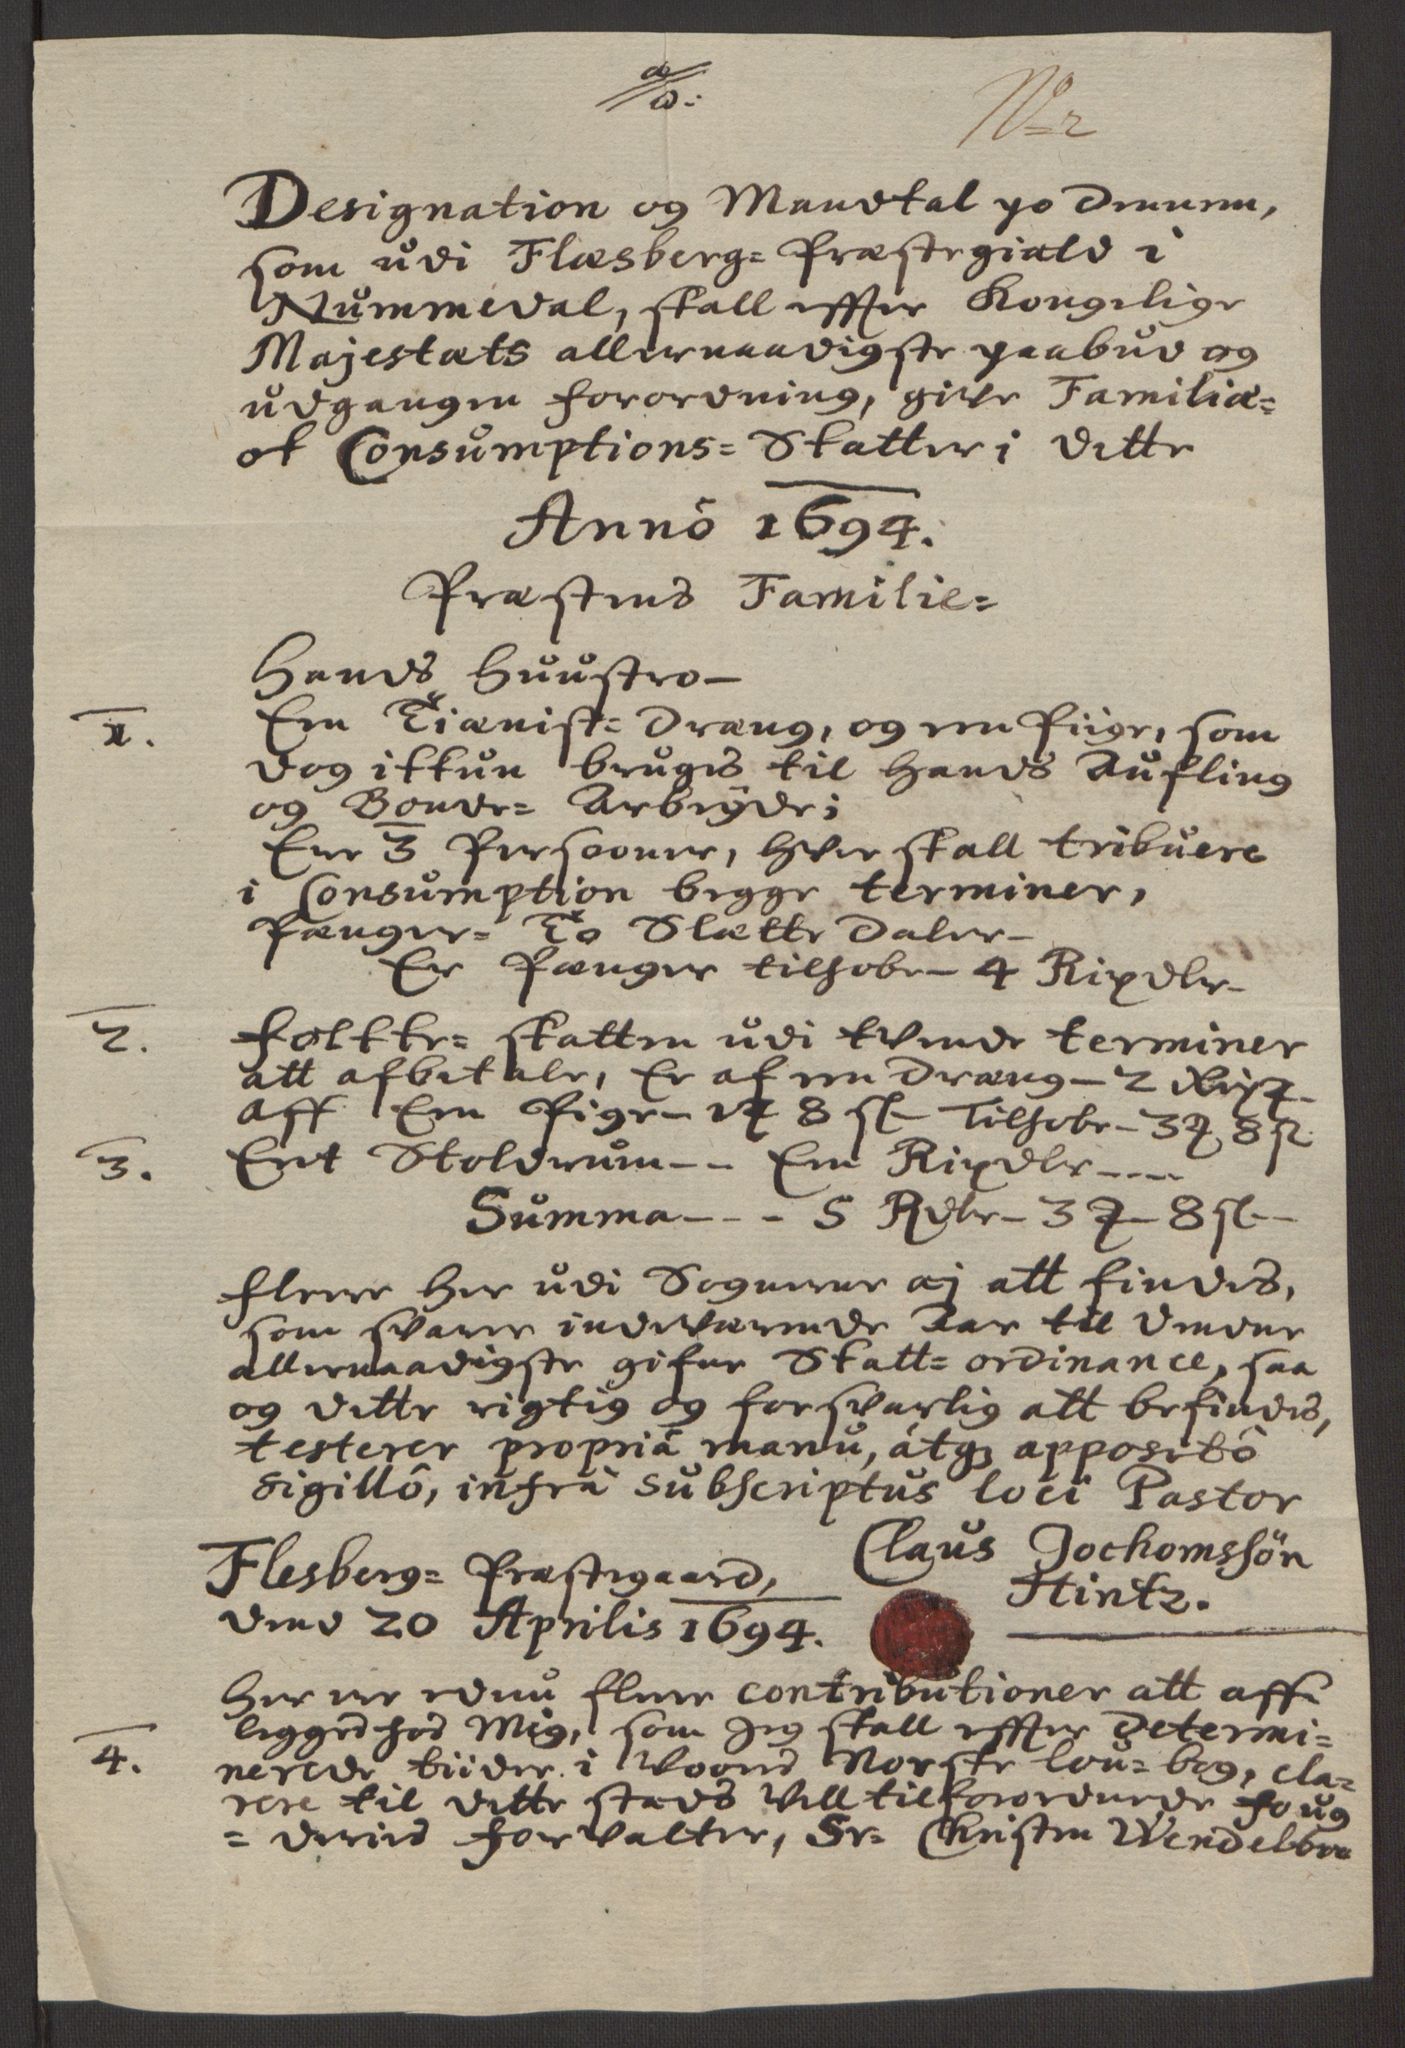 N: 2
Designation og Mandtal po dennem,
som udi Flæsberg= Præstegiæld i
Nummedal, skall effter Kongelige
Majestæts allernaadigste paabud og
udgangen forordning, give Familiæ=
ok Consumptions= Skatter i dette
Annô 1694.
Præstens Familie=
Hands Huustro-
1. Een Tiænist= Dræng, og een Piige, som
dog ikkun bruges til Hands Aufling
og Bonde= Arbeyde;
Ere 3 Persooner, hver skall tribuere
i Consumption begge terminer,
Pænger= To Slætte Daler-
Er Pænger tilhobe- 4 Rixdlr-
2. Folkke= skatten udi tvende terminer
att afbetale, Er af een Dræng- 2
Aff Een Pige- 1 8 sk- Tilhobe- 3 8 sk
3. Eet Stoldrum-- Een Rixdlr----
Summa--- 5 Rdlr- 3 - 8 sk-
Fleere her udi Sognene æj att findes,
som svarer indeværende Aar til denne
allernaadigste gifne Skatt= ordinance, saa
og dette rigtig og forsvarlig att befindes,
testerer propriâ manu, átq3 appositô
sigillô, infrà subscriptus loci Pastor
Claus Jochomssön
Hintz.
Flesberg= Præstegaard,
dend 20 Aprilis 1694.
Her ere ednu fleere contributioner att aff=
legges hos Mig, som Jeg skall effter determi=
4. nerede tiider i Voores Norske lou= bog, cla=
rere til dette stæds Vell tilforordnede Foug
= deries forvalter, Sr= Christen Wendelboe